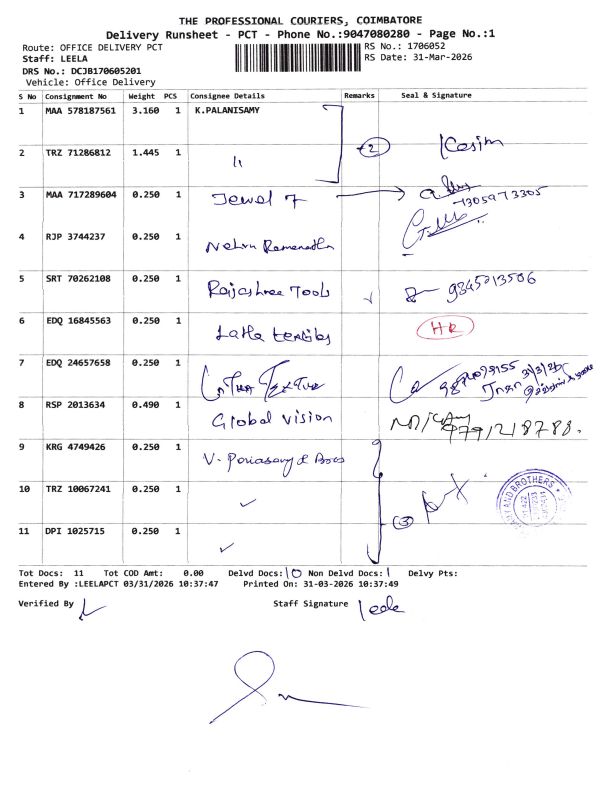 THE PROFESSIONAL COURIERS, COIMBATORE
Delivery Runsheet - PCT - Phone No.:9047080280 - Page No.:1
Route: OFFICE DELIVERY PCT
RS No.: 1706052
Staff: LEELA
RS Date: 31-Mar-2026
DRS No.: DCJB170605201
Vehicle: Office Delivery
S No Consignment No Weight PCS Consignee Details Remarks Seal & Signature
1 MAA 578187561 3.160 1 K.PALANISAMY
2 TRZ 71286812 1.445 1 11 2
3 MAA 717289604 0.250 1 Jewel 7
7305973305
4 RJP 3744237 0.250 1 Nehru
5 SRT 70262108 0.250 1 Rajashree Tools 9345013506
6 EDQ 16845563 0.250 1 Latha HR
7 EDQ 24657658 0.250 1 31/3/26
8 RSP 2013634 0.490 1 Global vision
9 KRG 4749426 0.250 1 V.
10 TRZ 10067241 0.250 1 ✓
AND BROTHERS
3
11 DPI 1025715 0.250 1 ✓
Tot Docs: 11 Tot COD Amt: 0.00 Delvd Docs: 10 Non Delvd Docs: 1 Delvy Pts:
Entered By :LEELAPCT 03/31/2026 10:37:47 Printed On: 31-03-2026 10:37:49
Verified By Staff Signature Leela